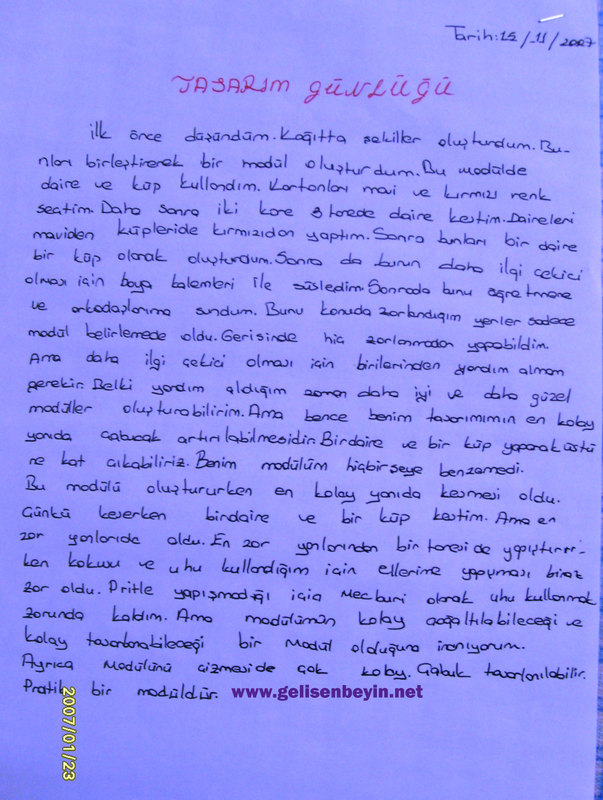 Tarih:15/11/2007
TASARIM GÜNLÜĞÜ
İlk önce düşündüm. Kağıtta şekiller oluşturdum. Bu-
nları birleştirerek bir modül oluşturdum. Bu modülde
daire ve küp kullandım. Kartonları mavi ve kırmızı renk
seçtim. Daha sonra iki kare 3 tanede daire kestim. Daireleri
maviden küpleride kırmızıdan yaptım. Sonra bunları bir daire
bir küp olarak oluşturdum. Sonra da bunun daha ilgi çekici
olması için boya kalemleri ile süsledim. Sonrada bunu öğretmene
ve arkadaşlarıma sundum. Bunu konuda zorlandığım yerler sadece
modül belirlemede oldu. Gerisinde hiç zorlanmadan yapabildim.
Ama daha ilgi çekici olması için birilerinden yardım almam
gerekir. Belki yardım aldığım zaman daha iyi ve daha güzel
modüller oluşturabilirim. Ama bence benim tasarımımın en kolay
yanıda çabucak artırılabilmesidir. Birdaire ve bir küp yaparak üstü
ne kat çıkabiliriz. Benim modülüm hiçbirşeye benzemedi.
Bu modülü oluştururken en kolay yanıda kesmesi oldu.
Çünkü keserken birdaire ve bir küp kestim. Ama en
zor yanlarıda oldu. En zor yanlarından bir tanesi de yapıştırır-
ken kokusu ve uhu kullandığım için ellerime yapışması biraz
zor oldu. Pritle yapışmadığı için mecburi olarak uhu kullanmak
zorunda kaldım. Ama modülümün kolay çoğaltılabileceği ve
kolay tasarlanabileceği bir modül olduğuna inanıyorum.
Ayrıca modülünü çizmeside çok kolay. Çabuk tasarlanılabilir.
Pratik bir modüldür. www.gelisenbeyin.net
2007/01/23